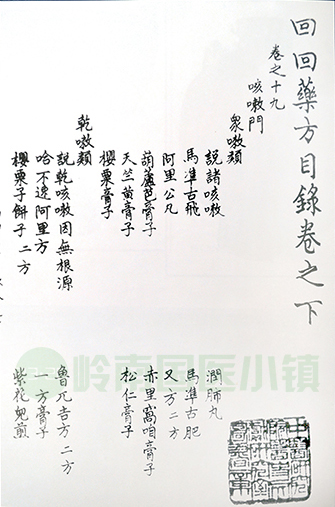 回回藥方目錄卷之下
卷之十九
咳嗽門
衆嗽類
說諸咳嗽
潤肺丸
馬準古飛
馬準古肥
阿里公凡
又方二方
葫蘆芭膏子
赤里窩咱膏子
天竺黃膏子
松仁膏子
櫻粟膏子
乾嗽類
說乾咳嗽因無根源
魯兀吉方二方
哈不達阿里方
一方膏子
櫻粟子餅子二方
紫花兒煎
岭南国医小镇